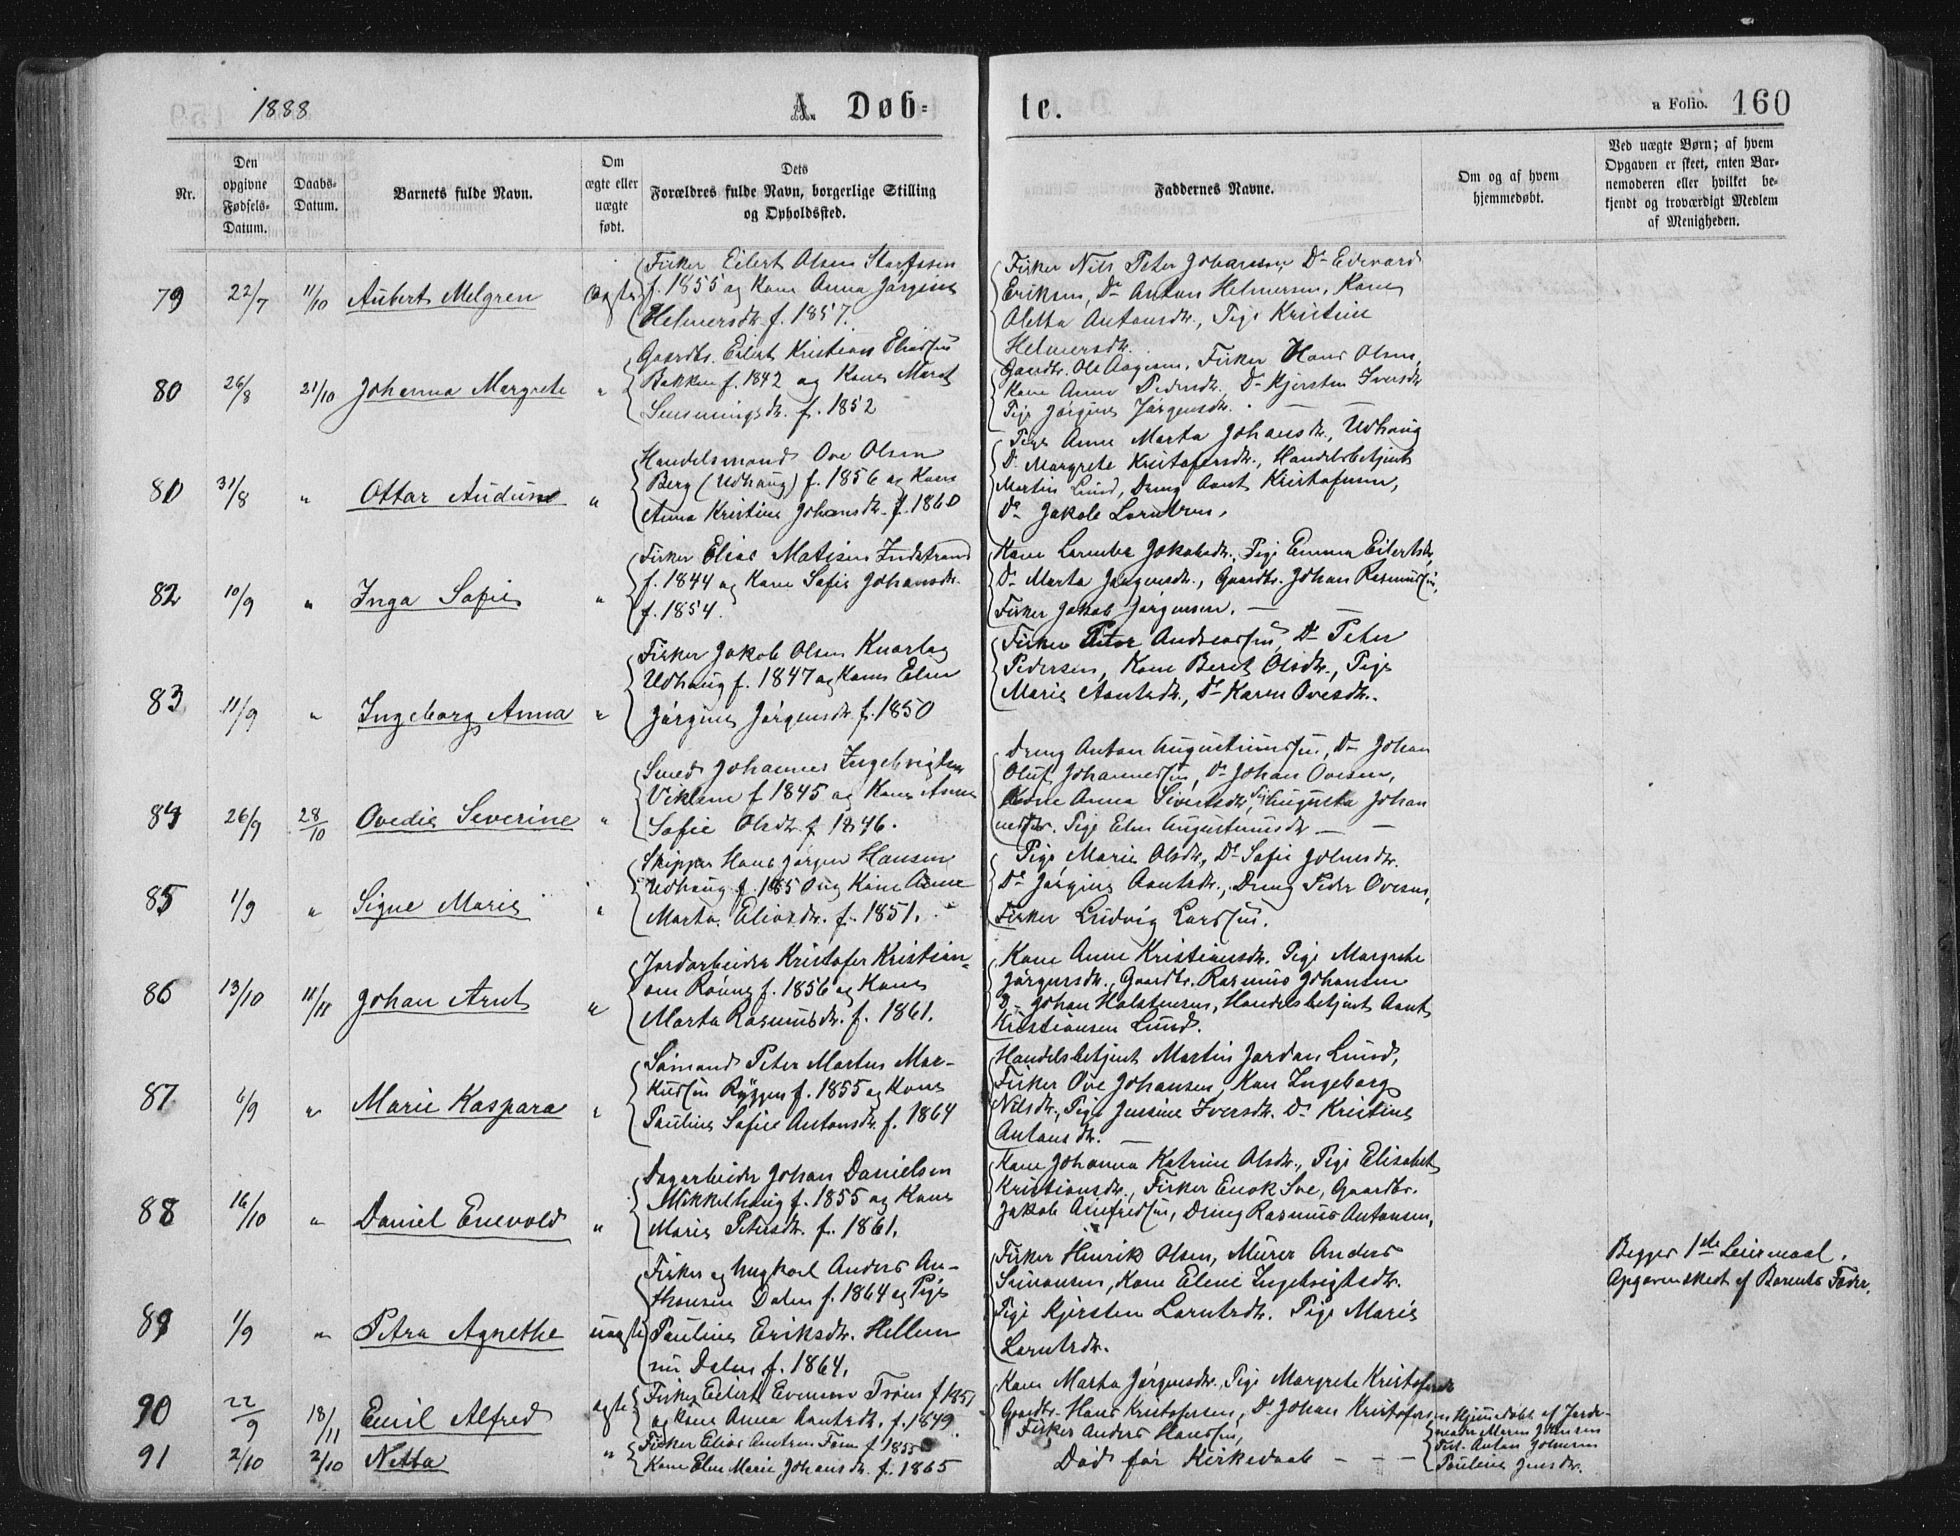 1888
A. Døb=
te.
a Folio. 160
Nr.
Den
opgivne
Fødsels=
Datum.
Daabs=
Datum.
Barnets fulde Navn.
Om
ægte eller
uægte
født.
Dets
Forældres fulde Navn, borgerlige Stilling
og Opholdssted.
Faddernes Navne.
Om og af hvem
hjemmedøbt.
Ved uægte Børn; af hvem
Opgaven er skeet, enten Bar=
nemoderen eller hvilket be=
kjendt og troværdigt Medlem
af Menigheden.
79 22/7 11/10 Aubert Melgren Ægte
Fisker Eilert Olsen
f. 1855 og Kone Anna Jørgine
Helmersdtr. f. 1857.
Fisker Nils Peter Johansen, Do Edevard
Eriksen, Do Anton Helmersen, Kone
Oletta Antonsdtr., Pige Kristine
Helmersdtr.
80 26/8 21/10 Johanna Margrete "
Gaardbr. Eilert Kristian Eliassen
Bakken f. 1842 og Kone Maret
f. 1852
Gaardbr. Ole Aagesen, Fisker Hans Olsen,
Kone Anne Pedersdtr, Do Kjersten Iversdtr
Pige Jørgine Jørgensdtr.
81 31/8 " Ottar Audun "
Handelsmand Ove Olsen
Berg (Udhaug) f. 1856 og Kone
Anna Kristine Johansdtr. f. 1860
Pige Anne Marta Johansdtr., Udhaug
Do Margrete Kristofersdtr., Handelsbetjent
Martin Lund, Dreng Arnt Kristofersen,
Do Jakob Larntsen,
82 10/9 " Inga Sofie "
Fisker Elias Matisen Indstrand
f. 1844 og Kone Sofie Johansdtr.
f. 1854.
Kone Jakobsdtr., Pige Emma Eilertsdtr,
Do Marta Jørgensdtr., Gaardbr. Johan Rasmussen,
Fisker Jakob Jørgensen. —
83 11/9 " Ingeborg Anna "
Fisker Jakob Olsen
Udhaug f. 1847 og Kone Elen
Jørgine Jørgensdtr. f. 1850
Fisker Peter Andreassen, Do Peter
Pedersen, Kone Beret Olsdtr., Pige
Marie Arntsdtr., Do Karen Ovesdtr.
84 26/9 28/10 Ovedie Severine "
Smed Johannes Ingebrigtsen
Viklem f 1845 og Kone Anne
Sofie Olsdtr. f 1846.
Dreng Anton Augustinussen, Do Johan
Oluf Johannessen, Do Johan Ovesen,
Kone Anna Sivertsdtr, Pige Augusta Johan
nesdtr. Pige Elen Augustinusdtr — —
85 1/9 " Signe Marie "
Skipper Hans Jørgen Hansen
Udhaug f. 1850 og Kone Anne
Marta Eliasdtr. f. 1851.
Pige Marie Olsdtr., Do Sofie
Do Jørgine Arntsdtr., Dreng Peder Ovesen,
Fisker Ludvig Larssen.
86 13/10 11/11 Johan Arnt "
Jordarbeider Kristofer Kristian=
sen f. 1856 og Kone
Marta Rasmusdtr. f. 1861.
Kone Anne Kristiansdtr. Pige Margrete
Jørgensdtr., Gaardbr. Rasmus Johansen
Do Johan Holstensen, Handelsbetjent Arnt
Kristiansen Lund.
87 6/9 " Marie Kaspara "
Sømand Peter Martin Mar-
kussen Ryggen f. 1855 og Kone
Pauline Sofie Antonsdtr. f. 1864
Handelsbetjent Martin Jordan Lund,
Fisker Ove Johansen, Kone Ingeborg
Nilsdtr., Pige Jensine Iversdtr. Do Kristine
Antonsdtr. —
88 16/10 " Daniel Enevold "
Dagarbeider Johan Danielsen
Mikkelhaug f. 1855 og Kone
Marie Petersdtr. f. 1861.
Kone Johanna Katrine Olsdtr., Pige Elisabet
Kristiansdtr., Fisker Enok Sve, Gaardbr.
Jakob Arnfredsen, Dreng Rasmus Antonsen,
89 1/9 " Petra Agnethe uægte
Fisker og Ungkarl Anders An-
thonsen Dalen f. 1864 og Pige
Pauline Eriksdtr. Hellem
nu Dalen f. 1864.
Fisker Henrik Olsen, Murer Anders
Simonsen, Kone Eline Ingebrigtsdtr.
Pige Kjersten Larntsdtr. Pige Marie
Larntsdtr.
Begges 1ste Leiermaal.
Opgaven skeet af Barnets Fader.
90 22/9 18/11 Emil Alfred ægte
Fisker Eilert Evensen f 1851
og Kone Anna Arntsdtr. f. 1849.
Kone Marta Jørgensdtr., Pige Margrete Kristofersdtr
Gaardbr. Hans Kristofersen, Do Johan Kristofersen
Fisker Anders Hanssen,
91 2/10 2/10 Netta "
Fisker Elias f 1855
Kone Elen Marie Johansdtr. f. 1865
Død før Kirkedaab — — —
Hjemmedøbt af Jorde-
moder Johnsen
Test. Anton Johnsen
Pauline Jensdtr.